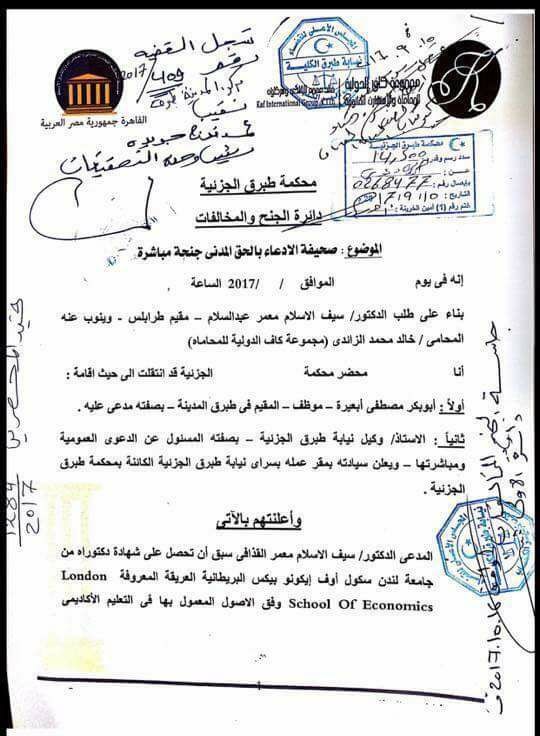 تسجل القضية
رقم 409 / 2017
القاهرة جمهورية مصر العربية
المجلس الأعلى للقضاء
نيابة طبرق الكلية
مجموعة كاف الدولية
للمحاماة والاستشارات القانونية
Kaf International Group
محكمة طبرق الجزئية
محكمة طبرق الجزئية
دائرة الجنح والمخالفات
الموضوع : صحيفة الادعاء بالحق المدنى جنحة مباشرة
إنه فى يوم الموافق / /2017 الساعة
بناء على طلب الدكتور/ سيف الاسلام معمر عبدالسلام – مقيم طرابلس - وينوب عنه
المحامى / خالد محمد الزائدى (مجموعة كاف الدولية للمحاماه)
أنا محضر محكمة الجزئية قد انتقلت الى حيث اقامة :
أولاً : أبوبكر مصطفى أبعيرة – موظف – المقيم فى طبرق المدينة – بصفته مدعى عليه .
ثانياً : الاستاذ/ وكيل نيابة طبرق الجزئية – بصفته المسئول عن الدعوى العمومية
ومباشرتها – ويعلن سيادته بمقر عمله بسراى نيابة طبرق الجزئية الكائنة بمحكمة طبرق
الجزئية .
وأعلنتهم بالآتى
المدعى الدكتور/ سيف الاسلام معمر القذافى سبق أن تحصل على شهادة دكتوراه من
جامعة لندن سكول أوف إيكونو بيكس البريطانية العريقة المعروفة London
School Of Economics وفق الاصول المعمول بها فى التعليم الأكاديمى
1284
2017
2017.10.16